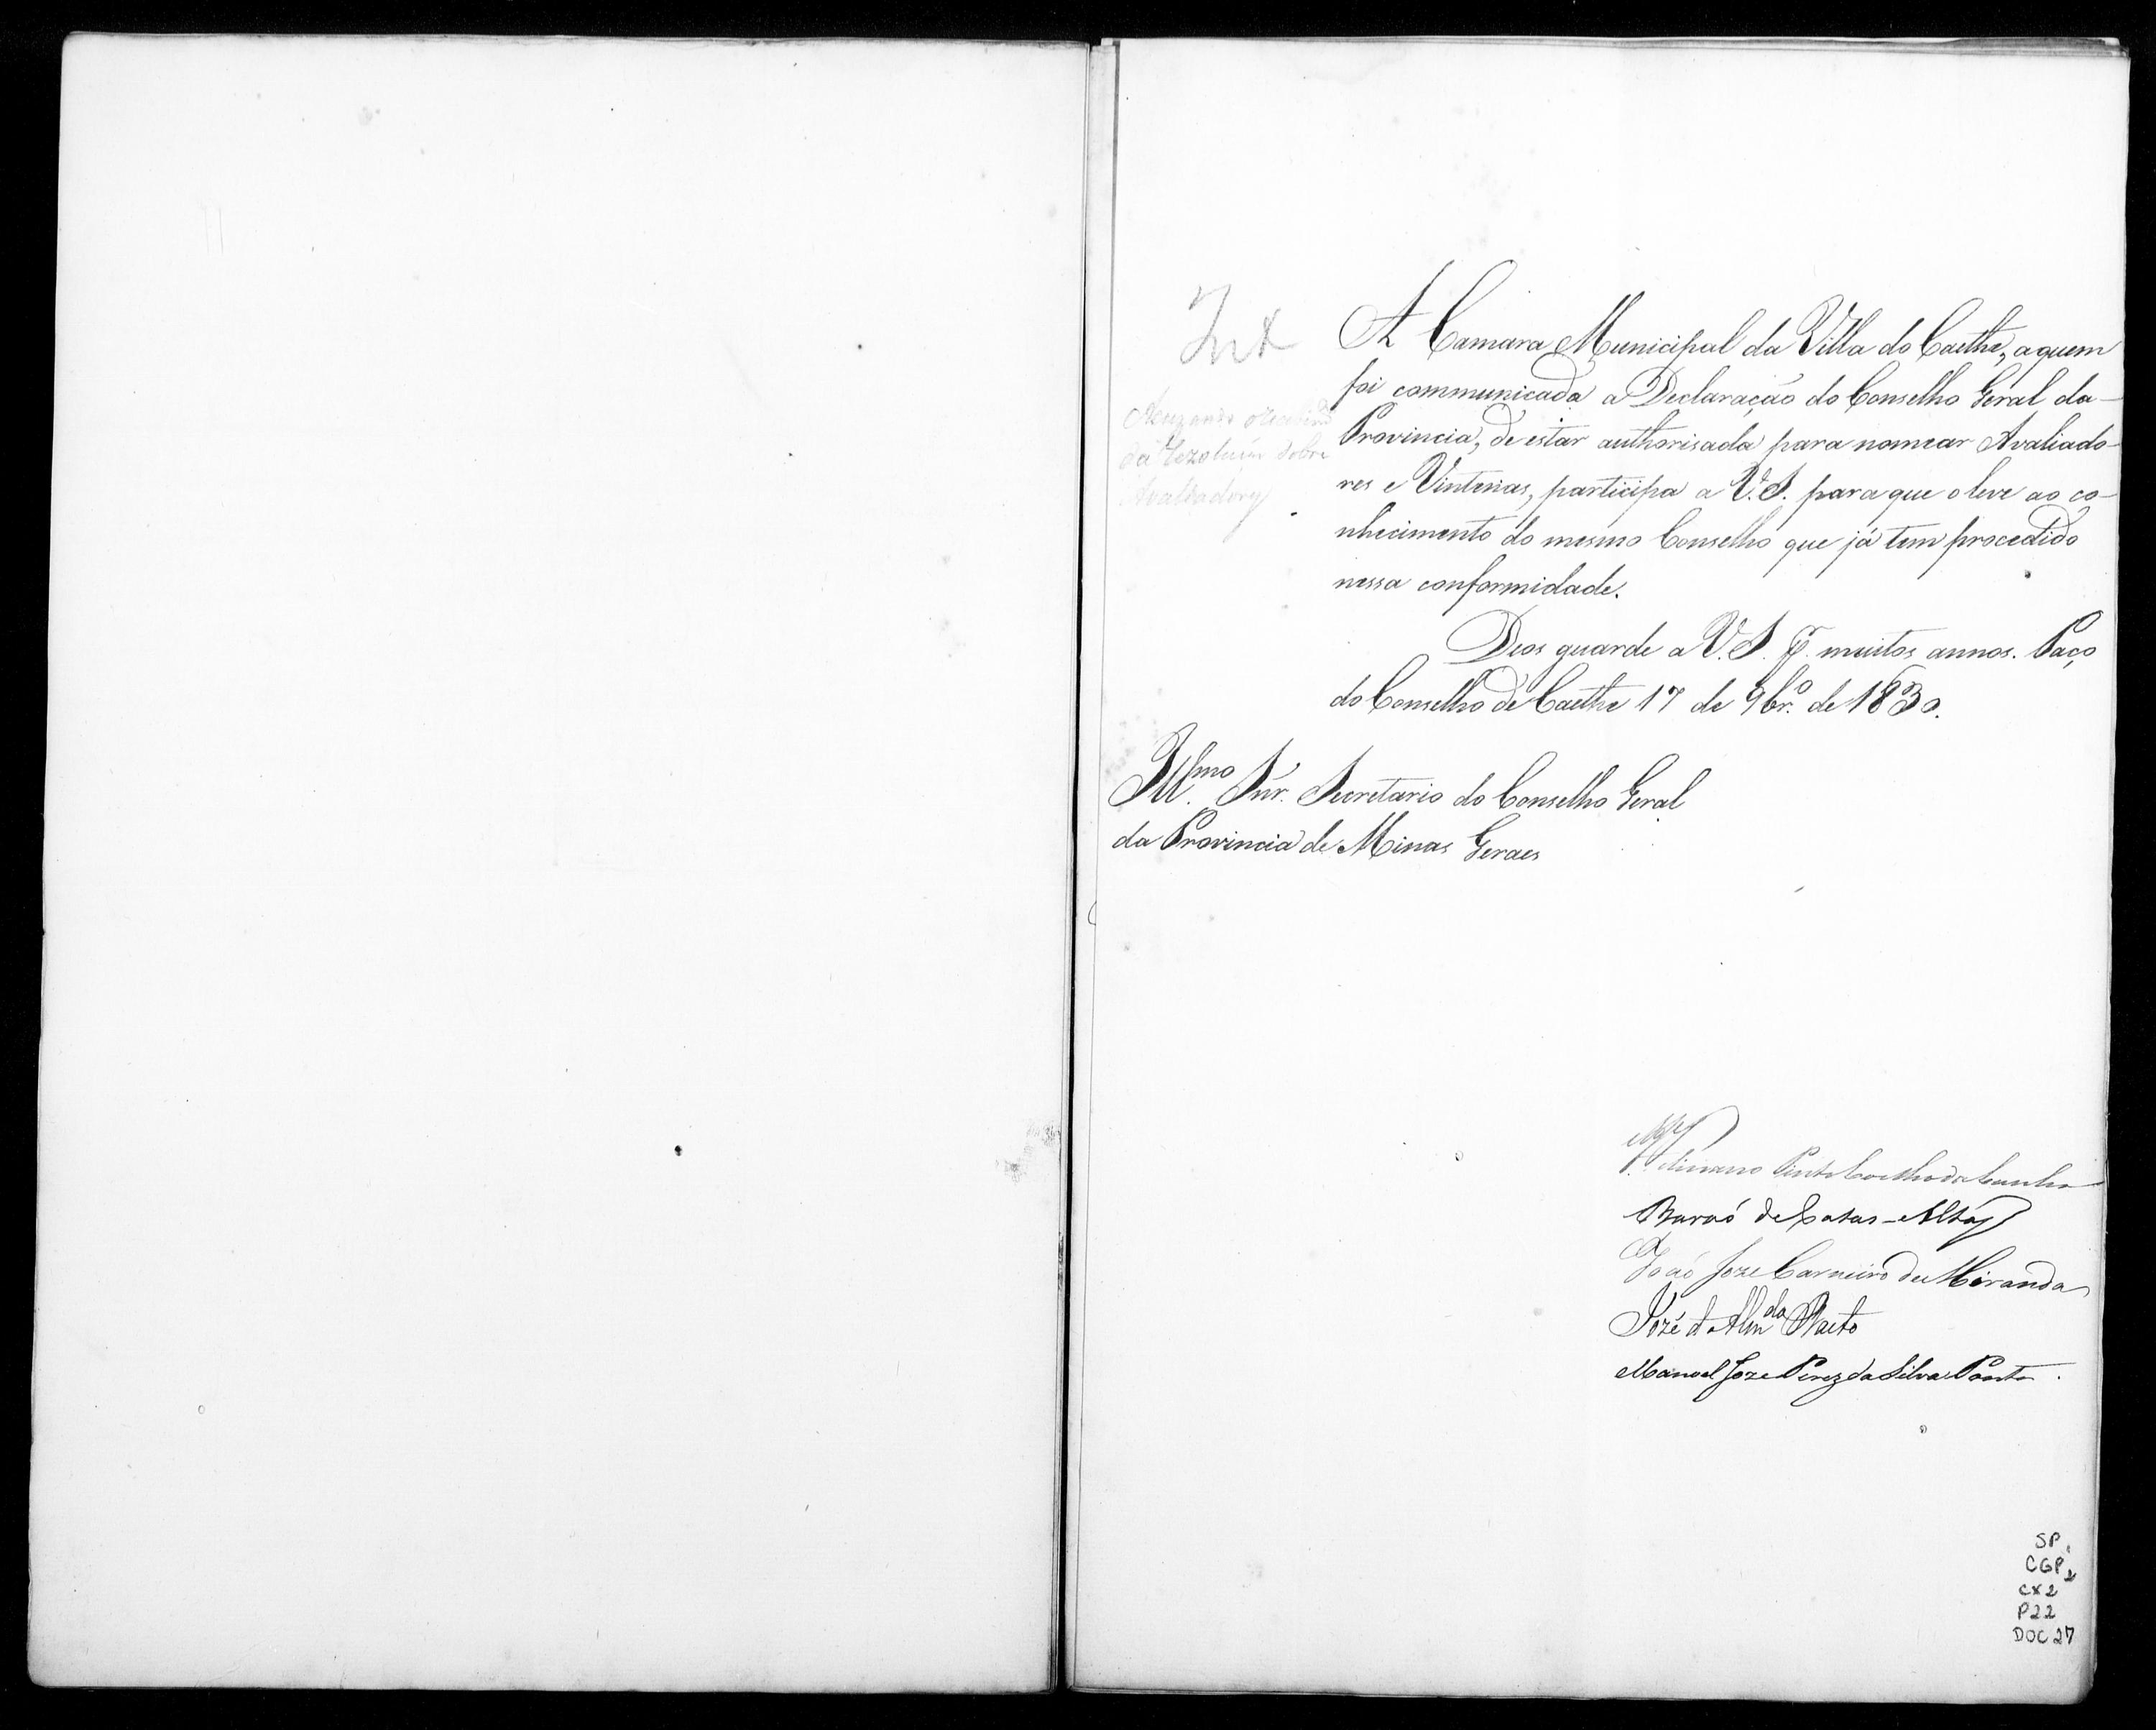 Int
Acuzando o recebim.to
da Rezoluçaõ sobre
Avaliadores
A Camara Municipal da Villa do Caethe, a quem
foi communicada a Declaração do Conselho Geral da
Provincia, de estar authorisada para nomear Avaliado-
res e Vintenas, participa a V.S. para que o leve ao co-
nhecimento do mesmo Conselho que já tem procedido
nessa conformidade.
Deos guarde a V. S. muitos annos. Paço
do Conselho de Caethe 17 de 9br.o de 1830.
Ill.mo Snr. Secretario do Conselho Geral
da Provincia de Minas Geraes
Pinto Coelho da Cunha
Baraõ de Catas-Altas
Joaõ Joze Carneiro de Miranda
Jozé d'Alm.da
Manoel Joze Pires da Silva Pontes
SP
CGP 2
CX2
P22
DOC 27